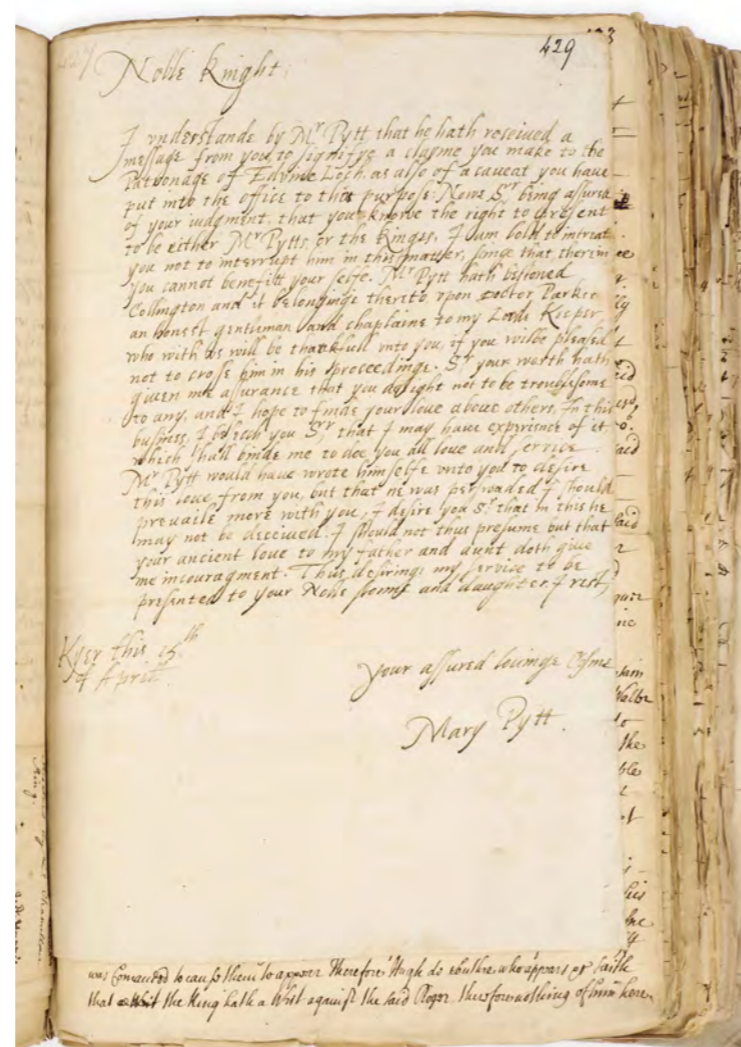 429
Noble Knight,
I vnderstande by Mr Pytt that he hath reseived a
message from you to signifye a clayme you make to the
Patronage of Edvine Loch, as also of a caveat you have
put into the office to that purpose: Nowe Sr, being assured
of your iudgment, that you knowe the right to present
to be either Mr Pytts, or the Kinges, I am bold to intreat
you not to interrupt him in this matter, singe that therein
you cannot benefitt your selfe. Mr Pytt hath
Collington and it belonginge thereto vpon doctor Parker
an honest gentleman and chaplaine to my Lord Keeper,
who with vs will be thankfull vnto you, if you wilbe pleased
not to crosse him in his proceedinge. Sr your worth hath
given me assurance that you delight not to be troublesome
to any, and I hope to finde your love above others. In this
busines, I beseech you Sr, that I may have experience of it
which shall binde me to doe you all love and service.
Mr Pytt would have wrote himselfe vnto you to desire
this love from you, but that he was perswaded I should
prevaile more with you, I desire you Sr that in this he
may not be deceived. I should not thus presume but that
your ancient love to my father and aunt doth give
me incouragment. Thus desiringe my service to be
presented to your Noble sonne and daughter, I rest,
Kyer this 15th
of Aprill
Your assured lovinge
Mary Pytt.
was Comanded to cause them to appeare Therefore Hugh do who appears &
that the King hath a Writ against the said Roger therefore nothing of him here.